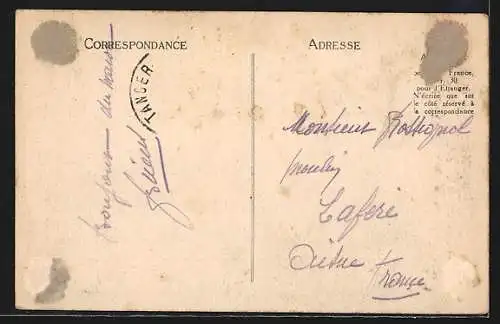 CORRESPONDANCE
ADRESSE
TANGER
Bonjour du
France,
30
pour l'Etranger.
N'écrire que sur
le côté réservé à
la correspondance
Monsieur Rossignol
Lafère
Aisne France